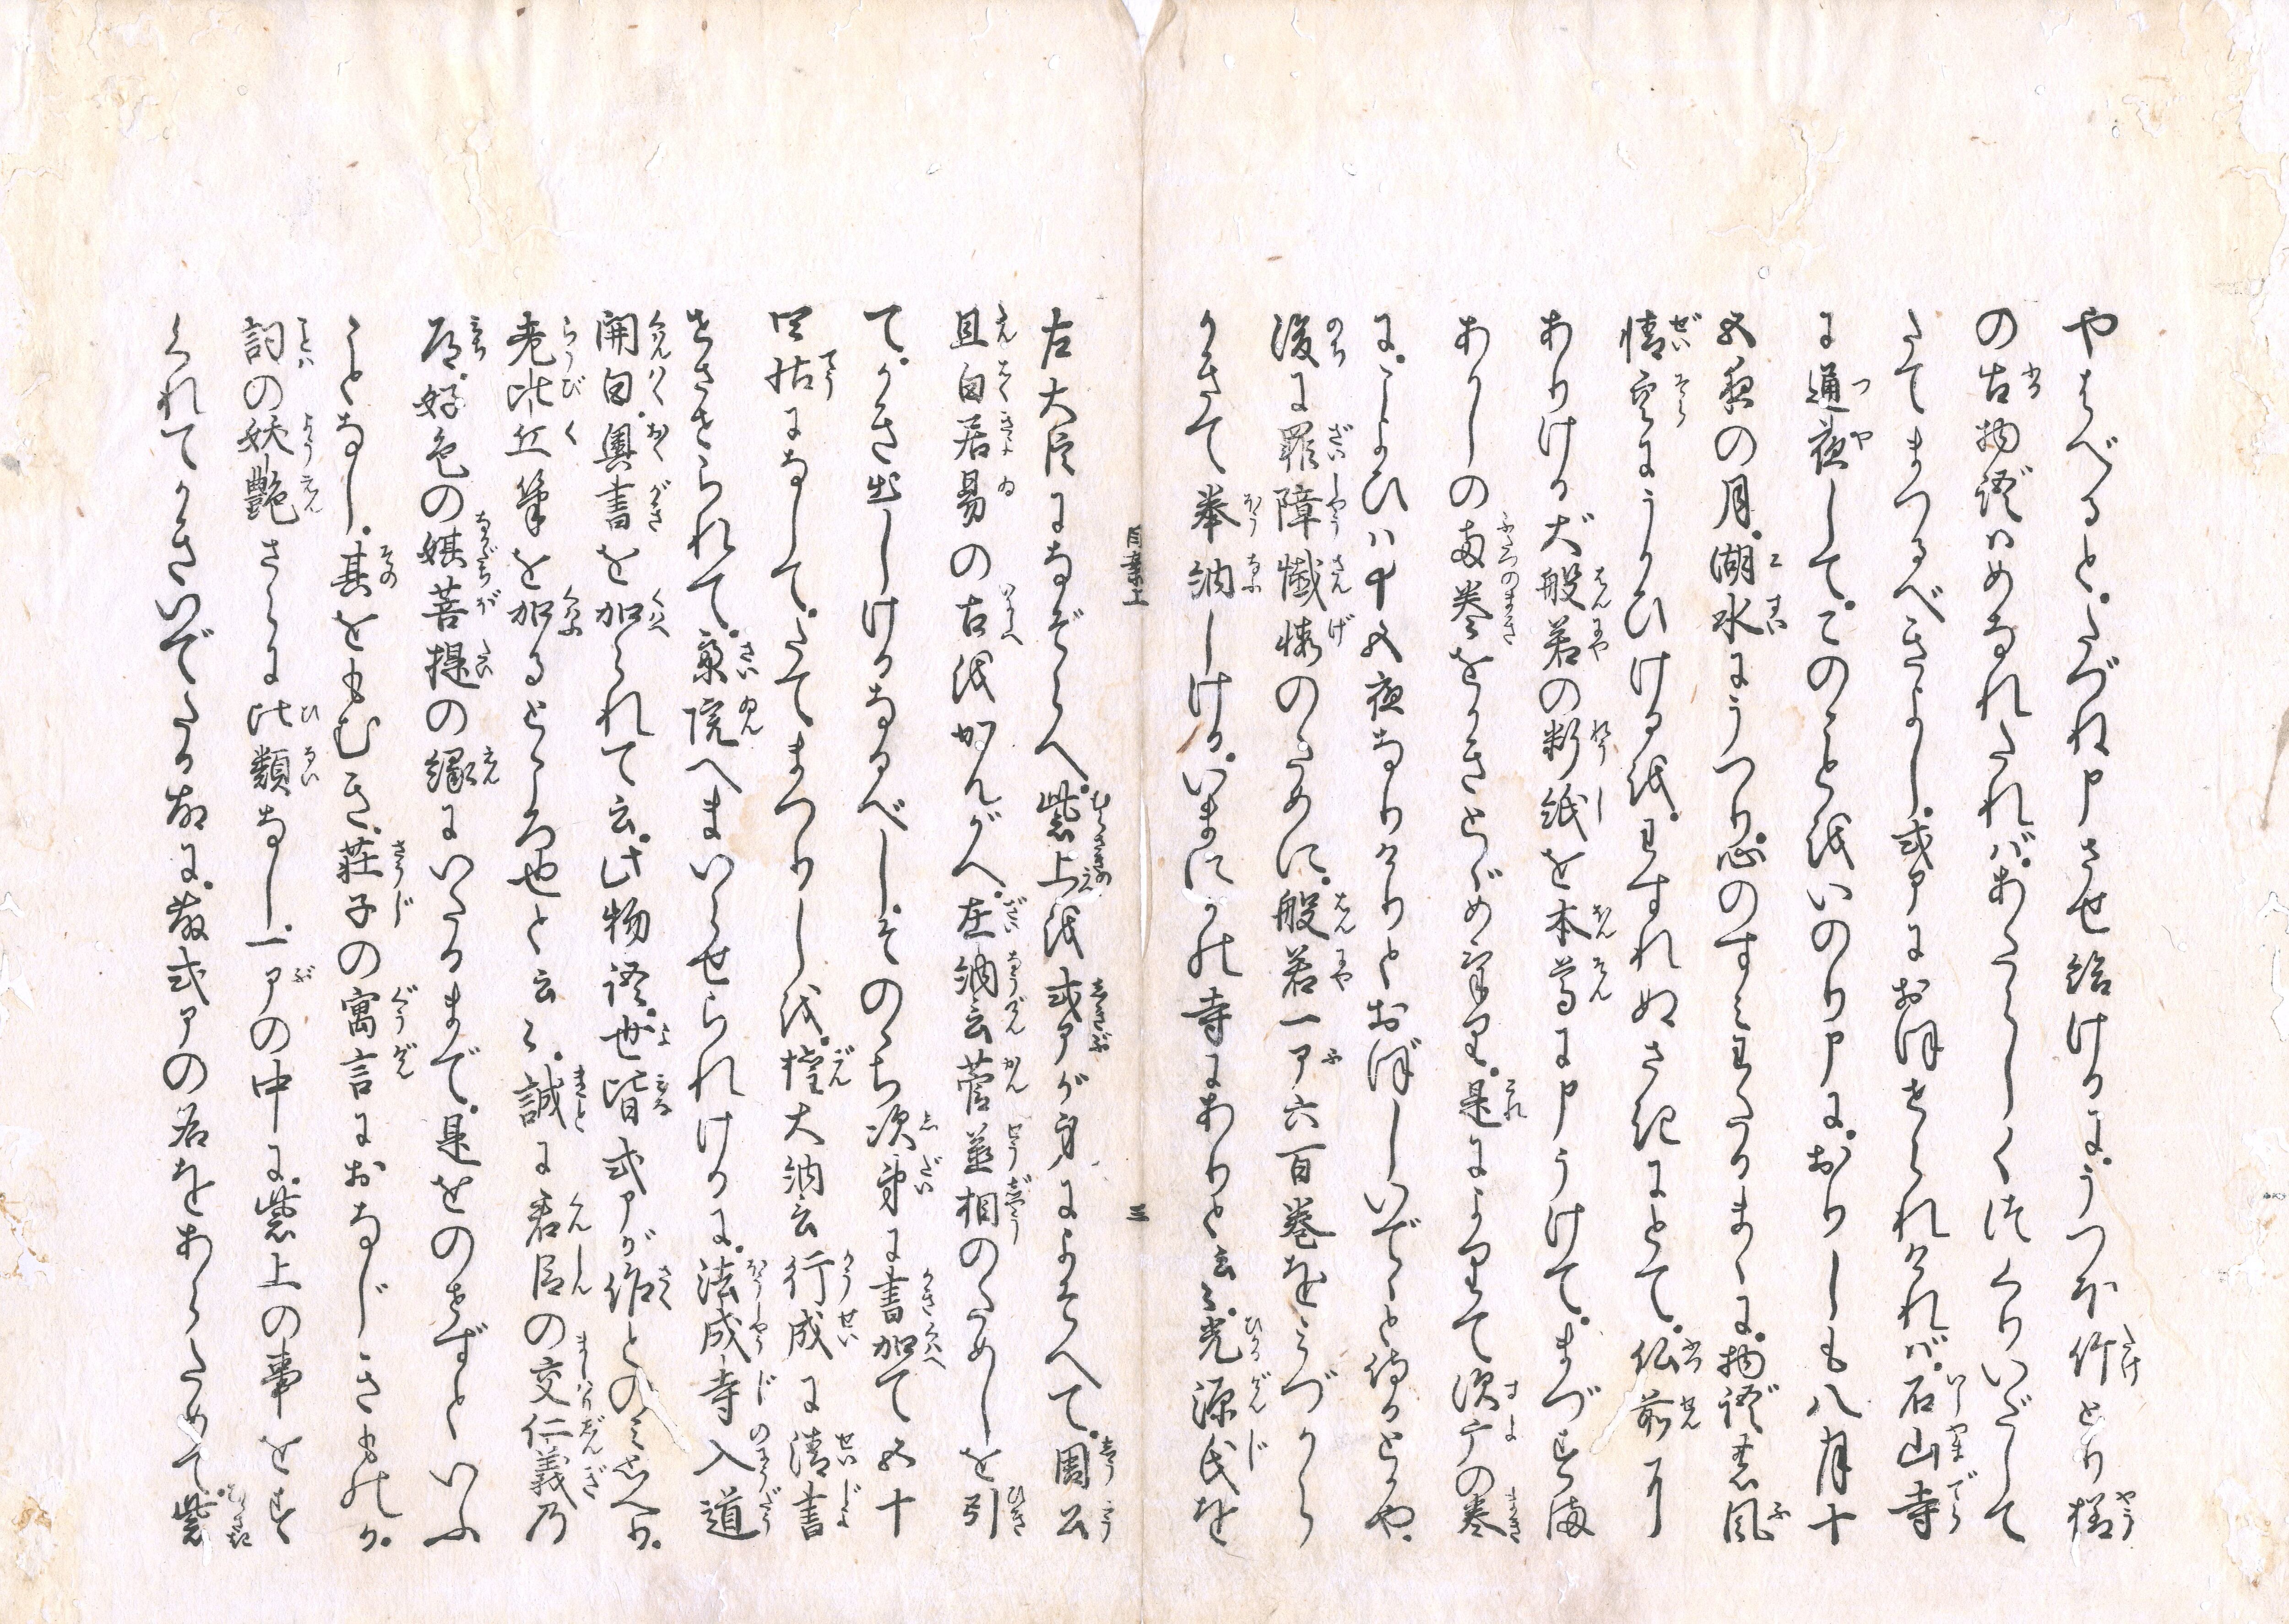 やはべると。たづね申させ給けるに。うつほ竹とり様
の古物語はめなれたれば。あたらしくつくりいだして
たてまつるべきよし。式ア におほせられければ。石山寺
に通夜して。このことをいのり申に。おりしも八月十
五夜の月。湖水にうつり。心のすみわたるまゝに。物語の風
情空にうかひけるを。わすれぬさきにとて。仏前に
ありける大般若の料紙を本尊に申うけて。まづすま
あかしの両巻をかきとゞめ畢。是によりて須广の巻
に。こよひは十五夜なりけりとおぼしいでゝと侍るとかや。
後に罪障懺悔のために。般若一ア六百巻をみづから
かきて奉納しける。いまにかの寺にありと云々。光源氏を
左大臣になぞらへ。紫上を式アが身によそへて。周公
旦白居易の古をかんがへ。在納言菅丞相のためしを引
て。かき出しけるなるべし。そののち次第に書加て五十
四帖になして。たてまつりしを。権大納言行成に清書
せさせられて。斎院へまいらせられけるに。法成寺入道
関白。奥書を加られて云。此物語。世皆式アが作とのみ思へり。
老比丘筆を加るところ也と云々。誠に君臣の交仁義乃
道。好色の媒菩提の縁にいたるまで。是をのせずといふ
ことなし。其をもむき。荘子の寓言におなじきものか。
詞の妖艶さらに比類なし。一アの中に。紫上の事をす
くれてかきいでたる故に。藤式アの名をあらためて。紫
目案上
三